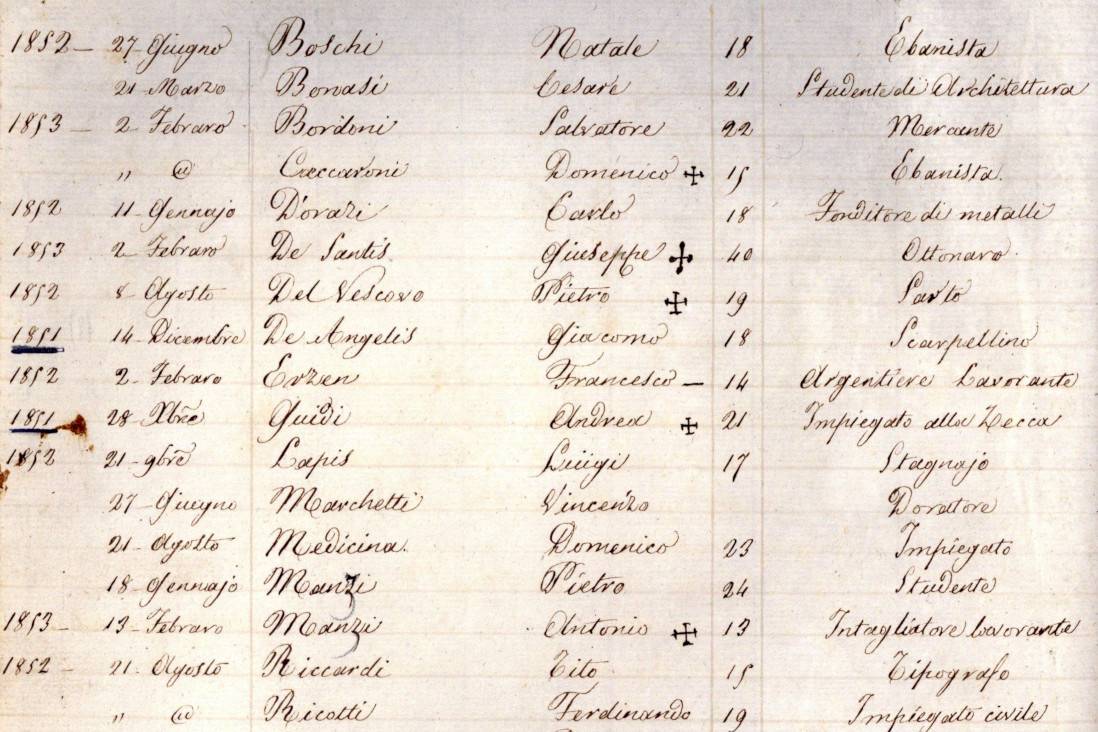 1852 - 27 Giugno Boschi Natale 18 Ebanista
21 Marzo Bonasi Cesare 21 Studente di Architettura
1853 - 2 Febraro Bordoni Salvatore 22 Mercante
„ @ Caccaroni Domenico ✠ 15 Ebanista
1852 11 Gennajo D'orazi Carlo 18 Fonditore di metalli
1853 2 Febraro De Santis Giuseppe ✠ 40 Ottonaro
1852 8 Agosto Del Vescovo Pietro ✠ 19 Sarto
1851 14 Dicembre De Angelis Giacomo 18 Scarpellino
1852 2 Febraro Erzen Francesco - 14 Argentiere Lavorante
1851 28 Xbre Guidi Andrea ✠ 21 Impiegato alla Zecca
1852 21 9bre Lapis Luigi 17 Stagnajo
27 Giugno Marchetti Vincenzo Doratore
21 Agosto Medicina Domenico 23 Impiegato
18 Gennajo Manzi Pietro 24 Studente
1853 - 13 Febraro Manzi Antonio ✠ 13 Intagliatore lavorante
1852 - 21 Agosto Riccardi Tito 15 Tipografo
„ @ Ricotti Ferdinando 19 Impiegato civile